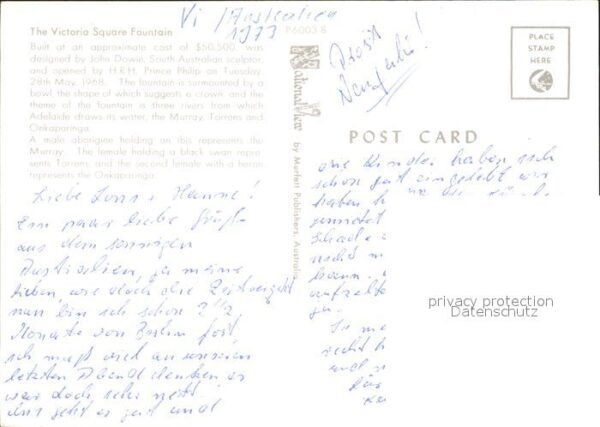 Vi / Australien
1973
The Victoria Square Fountain
P6003 8
Built at an approximate cost of $50,500 was
designed by John Dowie, South Australian sculptor,
and opened by H.R.H. Prince Philip on Tuesday,
28th May, 1968. The fountain is surrounded by a
bowl, the shape of which suggests a crown and the
theme of the fountain is three rivers from which
Adelaide draws its water, the Murray, Torrens and
Onkaparinga.
A male aborigine holding an ibis represents the
Murray. The female holding a black swan repre-
sents Torrens, and the second female with a heron
represents the Onkaparinga.
Prosit
Neujahr!
PLACE
STAMP
HERE
National View
by Murfett Publishers, Australia
POST CARD
Liebe Hanne!
Ein paar liebe Grüße
aus dem sonnigen
Australien, ja meine
Lieben wie doch die Zeit vergeht
nun bin ich schon 2 1/2
Monate von fort,
ich muß viel an unseren
letzten Abend denken es
war doch sehr nett.
Uns geht es gut und
die Kinder haben sich
schon gut eingelebt wir
haben
gemietet
Schade
nicht
kann.
ja.
So
recht
und
privacy protection
Datenschutz